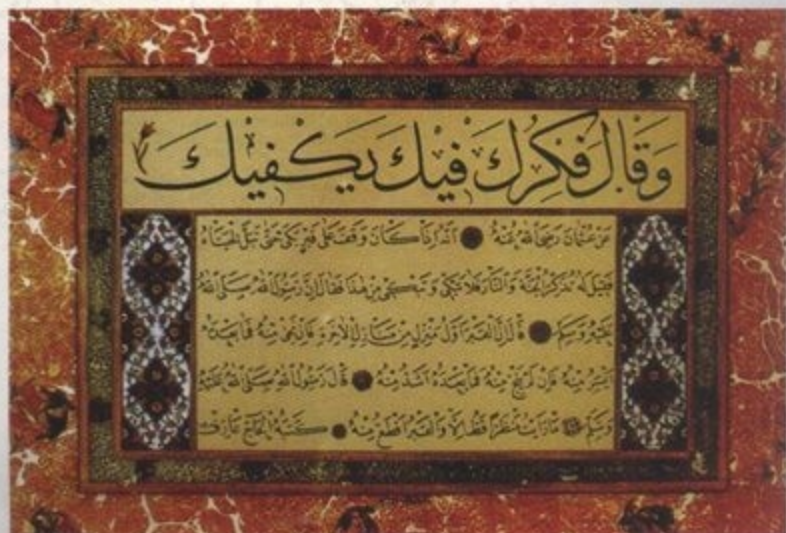 وَقَالَ فَكِّرُكَ فِيْكَ يَكْفِيْكَ
عَنْ عُثْمَانَ رَضِيَ اللهُ عَنْهُ اَنَّهُ اِذَا كَانَ وَقَفَ عَلَى قَبْرٍ بَكَى حَتَّى تَبْتَلَّ لِحْيَتَاهُ
فَقِيْلَ لَهُ تَذْكُرُ الْجَنَّةَ وَالنَّارَ فَلَا تَبْكِي وَتَبْكِي مِنْ هٰذَا فَقَالَ اِنَّ رَسُوْلَ اللهِ صَلَّى اللهُ
عَلَيْهِ وَسَلَّمَ قَالَ اِنَّ الْقَبْرَ اَوَّلُ مَنْزِلٍ مِنْ مَنَازِلِ الْاٰخِرَةِ فَاِنْ نَجٰى مِنْهُ فَمَا بَعْدَهُ
اَيْسَرُ مِنْهُ فَاِنْ لَمْ يَنْجُ مِنْهُ فَمَا بَعْدَهُ اَشَدُّ مِنْهُ قَالَ رَسُوْلُ اللهِ صَلَّى اللهُ عَلَيْهِ
وَسَلَّمَ مَا رَاَيْتُ مَنْظَرًا قَطُّ اِلَّا وَالْقَبْرُ اَفْظَعُ مِنْهُ كَتَبَهُ الْحَاجّ عَارِف